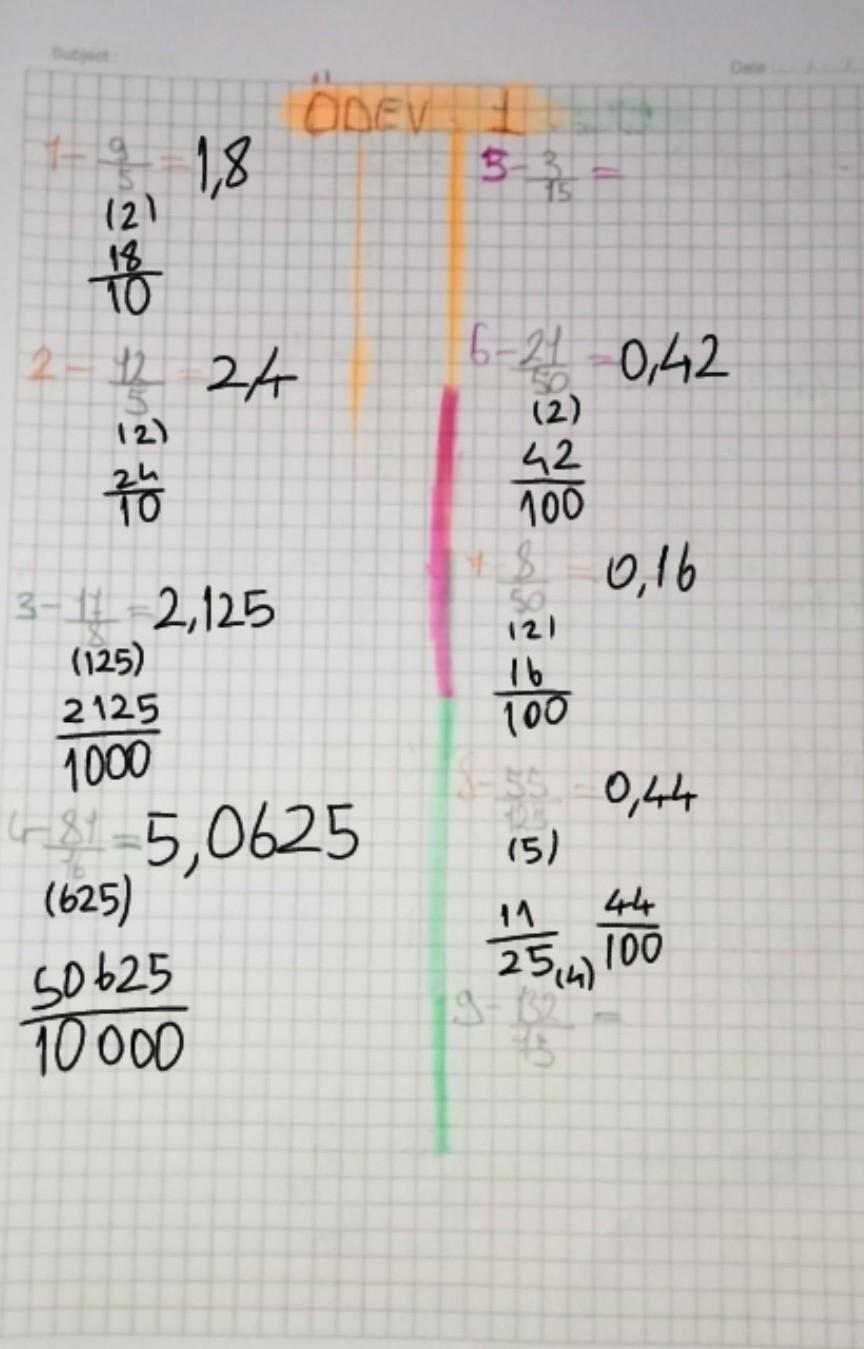 Subject:
Date: ..../..../....
ÖDEV 1
1- 9/5 = 1,8
(2)
18/10
2- 12/5 = 2,4
(2)
24/10
3- 17/8 = 2,125
(125)
2125/1000
4- 81/16 = 5,0625
(625)
50625/10000
5- 3/15 =
6- 21/50 = 0,42
(2)
42/100
7- 8/50 = 0,16
(2)
16/100
8- 55/125 = 0,44
(5)
11/25 (4) 44/100
9- 132/75 =